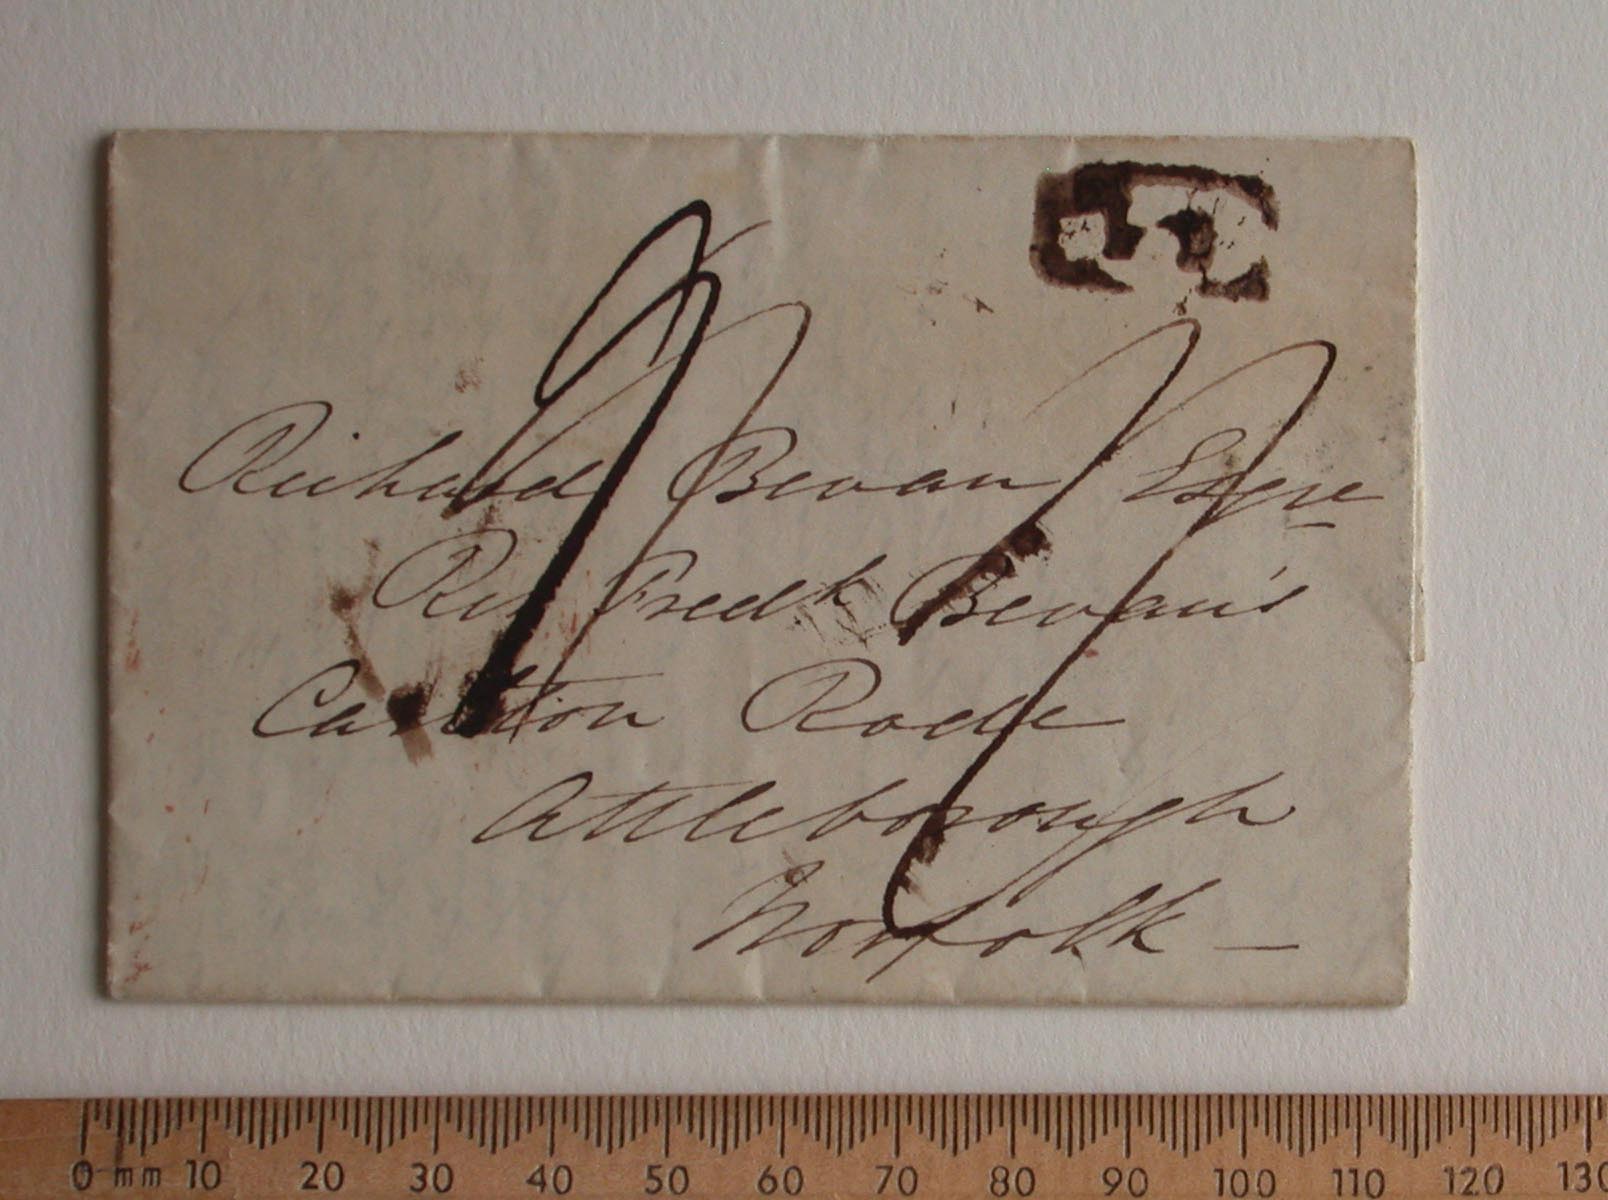 Richard Bevan Esqre
Rev Fredk Bevan's
Carlton Rode
Attleborough
Norfolk —
0 mm 10 20 30 40 50 60 70 80 90 100 110 120 130